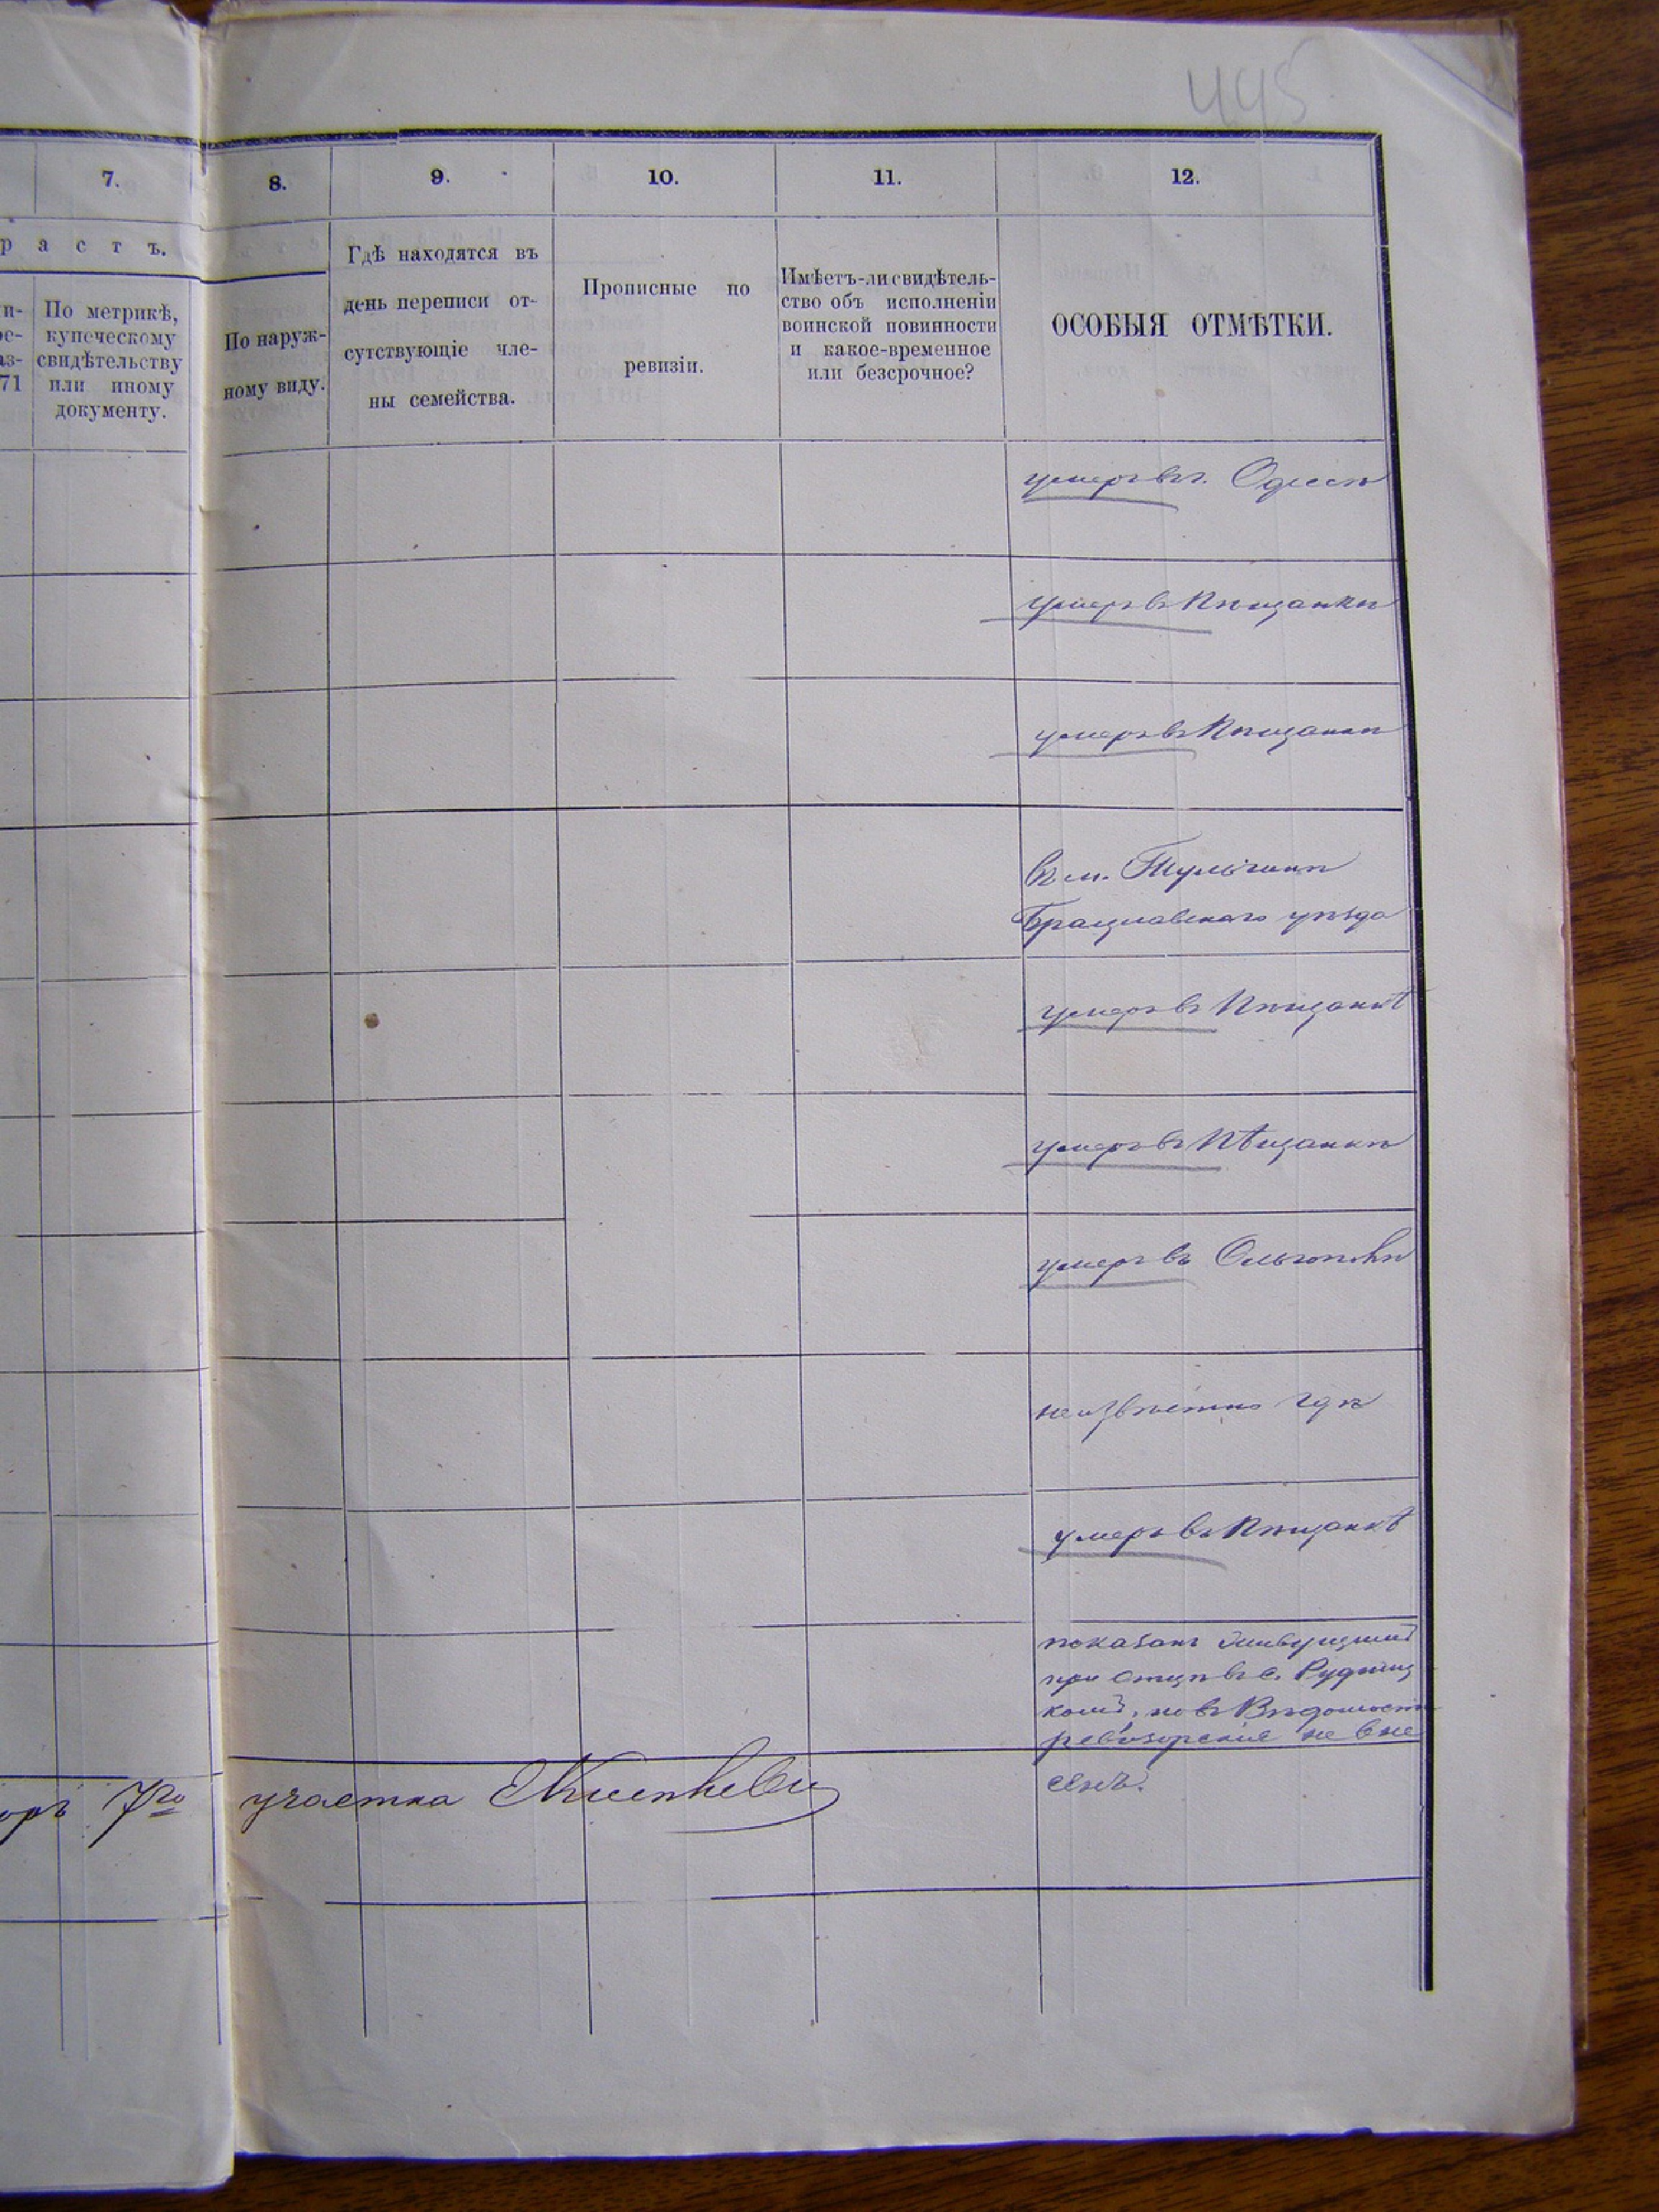 445
7.
8.
9.
10.
11.
12.
р а с т ъ.
По метрикѣ,
купеческому
свидѣтельству
или иному
документу.
71
По наруж-
ному виду.
Гдѣ находятся въ
день переписи от-
сутствующіе чле-
ны семейства.
Прописные по
ревизіи.
Имѣетъ-ли свидѣтель-
ство объ исполненіи
воинской повинности
и какое-временное
или безсрочное?
ОСОБЫЯ ОТМѢТКИ.
умеръ въ г. Одесѣ
умеръ въ Пѣщанкѣ
умеръ въ Пѣщанкѣ
въ м. Тульчинѣ
Брацлавскаго уѣзда
умеръ въ Пѣщанкѣ
умеръ въ Пѣщанкѣ
умеръ въ Ольгополѣ
неизвѣстно гдѣ
умеръ въ Пѣщанкѣ
показанъ живущимъ
при отцѣ въ с. Рудниц
комъ, но въ Вѣдомость
ревизорскіе не вне
сенъ.
7го участка